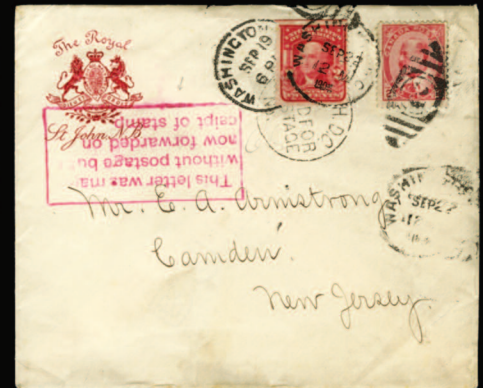 The Royal
St. John N.B.
This letter was ma
without postage bu
now forwarded on
ceipt of stamp
WASHINGTON
SEP 19
6
WASH
SEP 2
12
D.C.
FOR
TAGE
WASHIN
SEP 22
Mr. E. A. Armstrong
Camden
New Jersey.